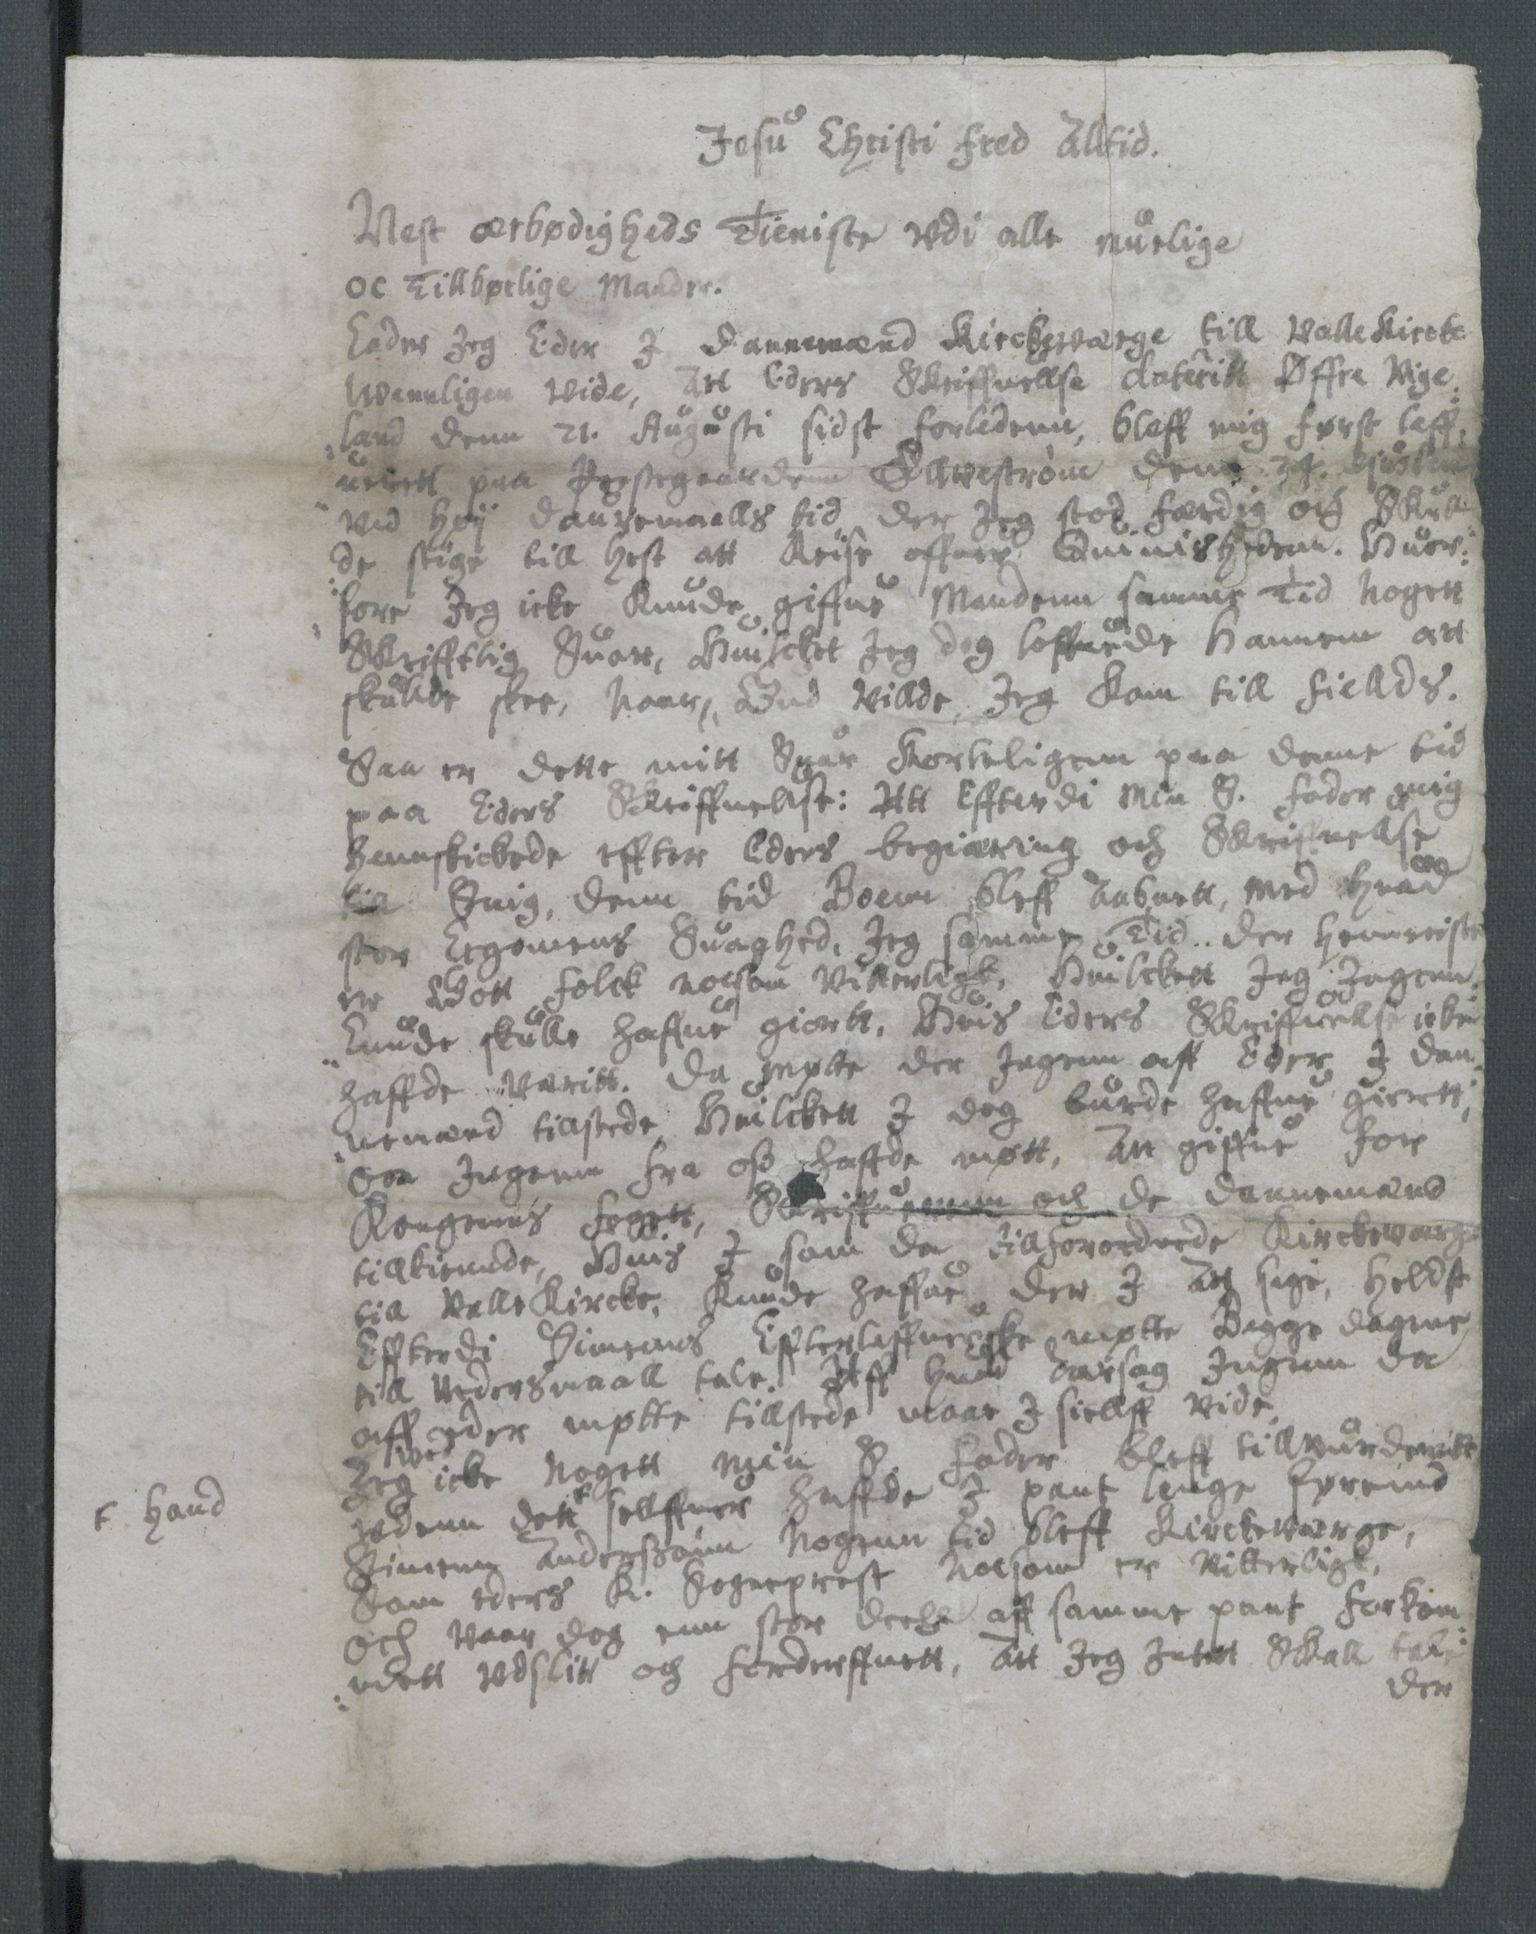 Jesu Christi fred Alltid.
Nest ærbødigheds Tieniste vdi alle muelige
oc Tillbørlige Maader.
Lader Jeg Eder J dannemænd Kirckeværge till Valle Kircke
Wennligen vide, Att Eders Skriffuellse dateritt Øffre Vige,
land denn 21. Augusti sidst forledenn, bleff mig først leff,
uerett paa Prestegaardenn Ellvestrøm denn
vid høy dauremaalls tid der Jeg stod færdig och Skull
de stige till hest att Reise offuer Huer,
fore Jeg icke Kunde giffue Mandenn samme Tid nogett
Skrifftlig Suar, Huilcket Jeg dog loffuede Hannem att
skulde skee, naar, Gud villde, Jeg kom till fiellds.
Saa er dette mitt Suar Korteligenn paa denne tid
paa Eders Skriffuellse: Att Effterdi Min S. fader mig
hennskickede effter Eders begiæring och Skriffuellse
till denn tid Boenn bleff Aabnett, med huad
stor Legomens Suaghed, Jeg samme Tid der hennreiste
er Gott folck nocsom vitterligt, Huilckett Jeg Ingenn,
Lunde skulle haffue giortt, Huis Eders Skriffuellse icke
haffde væritt. Da møtte der Ingenn aff Eder J dan,
nemænd tillstede, Huilckett J dog burde haffue giortt,
Och Ingenn fra oss haffde møtt, Att giffue for
Kongenns fogett, Skriffuerenn och de dannemænd
tillkiende, Huis J som da tillforordnede Kirckeværge
till Valle Kircke, Kunde haffue der J Att sige, helldst
Effterdi Simens Effterlaffuerske møtte Begge dagene
till Vedersmaall tale. Aff huad Aarsag Ingenn da
aff eder møtte tillstede maae J siellff vide.
Jeg icke nogett min S. fader bleff tillvurderitt
vdenn dett sellffuer haffde J pant lenge førennd
Simenn Anderssøun nogenn tid bleff Kirckeværge,
Som Eders K. Sogneprest nocsom er vitterligt,
och vaar dog enn stor deell aff samme pant forkom
mett vdslitt och forderffuett, Att Jeg Intet Skall tale
der
t hand